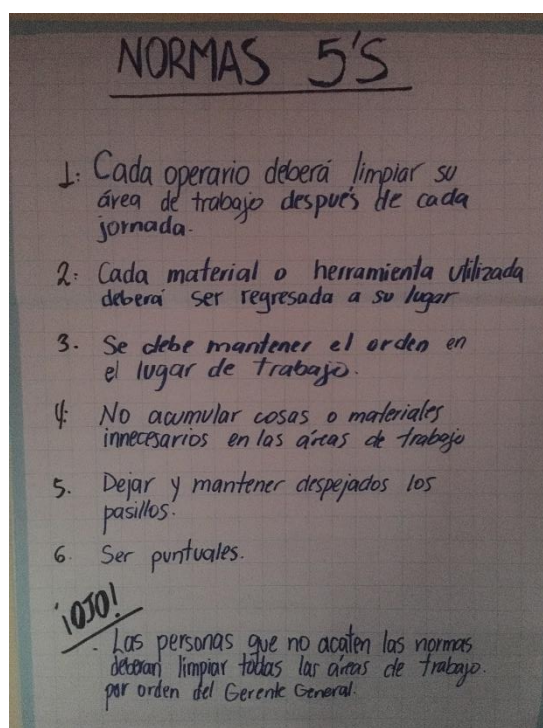 NORMAS 5'S
1: Cada operario deberá limpiar su
área de trabajo después de cada
jornada.
2: Cada material o herramienta utilizada
deberá ser regresada a su lugar
3. Se debe mantener el orden en
el lugar de trabajo.
4: No acumular cosas o materiales
innecesarios en las áreas de trabajo
5. Dejar y mantener despejados los
pasillos.
6. Ser puntuales.
¡OJO!
. Las personas que no acaten las normas
deberan limpiar todas las áreas de trabajo.
por orden del Gerente General.